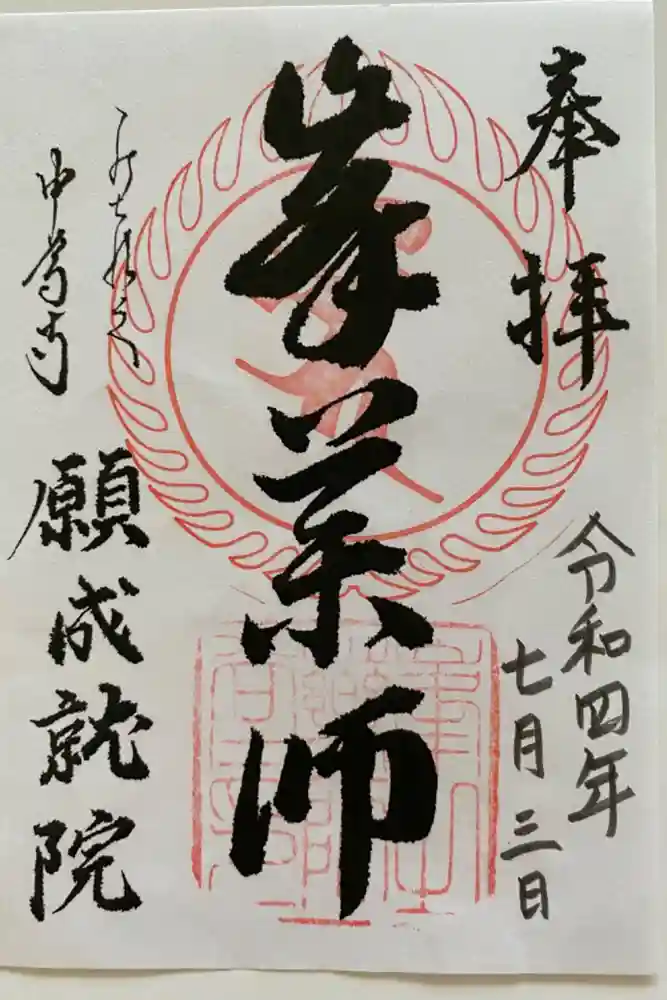 奉拝
令和四年
七月三日
峯薬師
中尊寺
願成就院